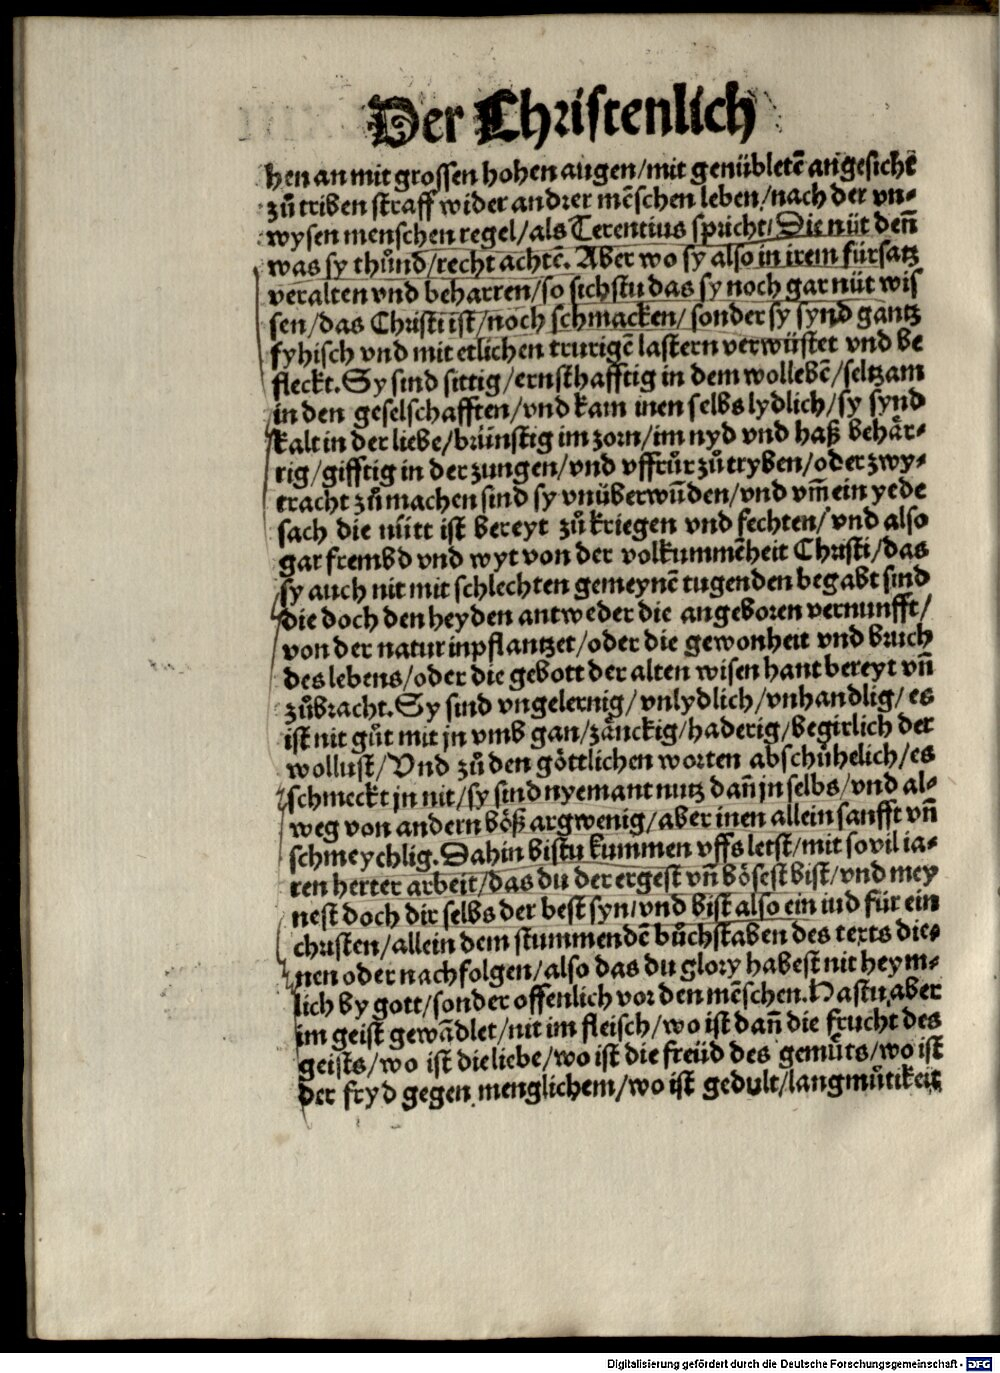 Der Christenlich
hen an mit grossen hohen augen/mit genübletẽ angesicht
zů triben straff wider andrer mẽschen leben/nach der vn-
wysen menschen regel/als Terentius spricht/Die nüt den̄
was sy thůnd/recht achtẽ. Aber wo sy also in irem fürsatz
veralten vnd beharren/so sichstu das sy noch gar nüt wis
sen/das Christi ist/noch schmacken/sonder sy synd gantz
fyhisch vnd mit etlichen trurigẽ lastern verwüstet vnd be
fleckt. Sy sind sittig/ernsthafftig in dem wollebẽ/seltzam
in den geselschafften/vnd kam inen selbs lydlich/sy synd
kalt in der liebe/brünstig im zorn/im nyd vnd haß behar-
rig/gifftig in der zungen/vnd vffrůr zů tryben/oder zwy-
tracht zů machen sind sy vnüberwũden/vnd vm̄ ein yede
sach die nütt ist bereyt zů kriegen vnd fechten/vnd also
gar frembd vnd wyt von der volkummẽheit Christi/das
sy auch nit mit schlechten gemeynẽ tugenden begabt sind
die doch den heyden antweder die angeboren vernunfft/
von der natur inpflantzet/oder die gewonheit vnd bruch
des lebens/oder die gebott der alten wisen hant bereyt vn̄
zůbracht. Sy sind vngelernig/vnlydlich/vnhandlig/es
ist nit gůt mit jn vmb gan/zänckig/haderig/begirlich der
wollust/Vnd zů den göttlichen worten abschühelich/es
schmeckt jn nit/sy sind nyemant nutz dan̄ jn selbs/vnd al-
weg von andern böß argwenig/aber inen allein sanfft vn̄
schmeychlig. Dahin bistu kummen vffs letst/mit sovil ia-
ren herter arbeit/das du der ergest vn̄ bösest bist/vnd mey
nest doch dir selbs der best syn/vnd bist also ein iud für ein
christen/allein dem stummendẽ bůchstaben des texts die-
nen oder nachfolgen/also das du glory habest nit heym-
lich by gott/sonder offenlich vor den mẽschen. Hastu aber
im geist gewãdlet/nit im fleisch/wo ist dan̄ die frucht des
geists/wo ist die liebe/wo ist die freüd des gemůts/wo ist
der fryd gegen menglichem/wo ist gedult/langmůtikeit
Digitalisierung gefördert durch die Deutsche Forschungsgemeinschaft - DFG